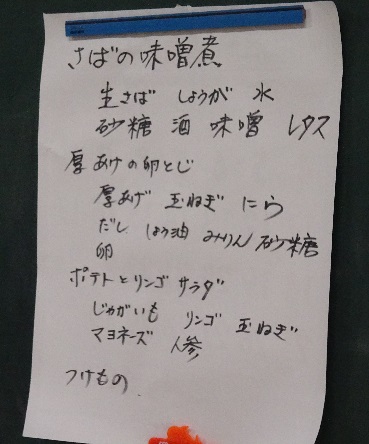 さばの味噌煮
生さば しょうが 水
砂糖 酒 味噌 レタス
厚あげの卵とじ
厚あげ 玉ねぎ にら
だし しょう油 みりん 砂糖
卵
ポテトとリンゴサラダ
じゃがいも リンゴ 玉ねぎ
マヨネーズ 人参
つけもの